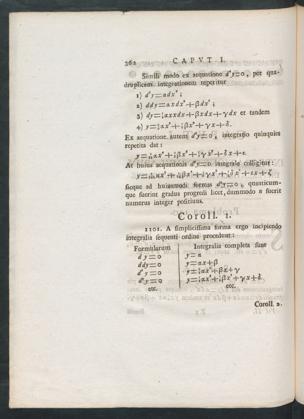 362 CAPVT I.
Simili modo ex aequatione d⁴y=0, per qua-
druplicem integrationem reperitur
1) d³y=αdx³;
2) ddy=αxdx²+βdx²;
3) dy=½αxxdx+βxdx+γdx et tandem
4) y=⅙αx³+½βx²+γx+δ.
Ex aequatione autem d⁵y=0, integratio quinquies
repetita dat:
At huius aequationis d⁶y=0 integrale colligitur:
sicque ad huiusmodi formas quanticum-
que fuerint gradus progredi licet, dummodo n fuerit
numerus integer positiuus.
Coroll. 1.
1101. A simplicissima forma ergo incipiendo
integralia sequenti ordine procedent:
Formularum Integralia completa sunt
dy=0 y=α
ddy=0 y=αx+β
d³y=0 y=½αx²+βx+γ
d⁴y=0 y=⅙αx³+½βx²+γx+δ
etc. etc.
Coroll. 2.